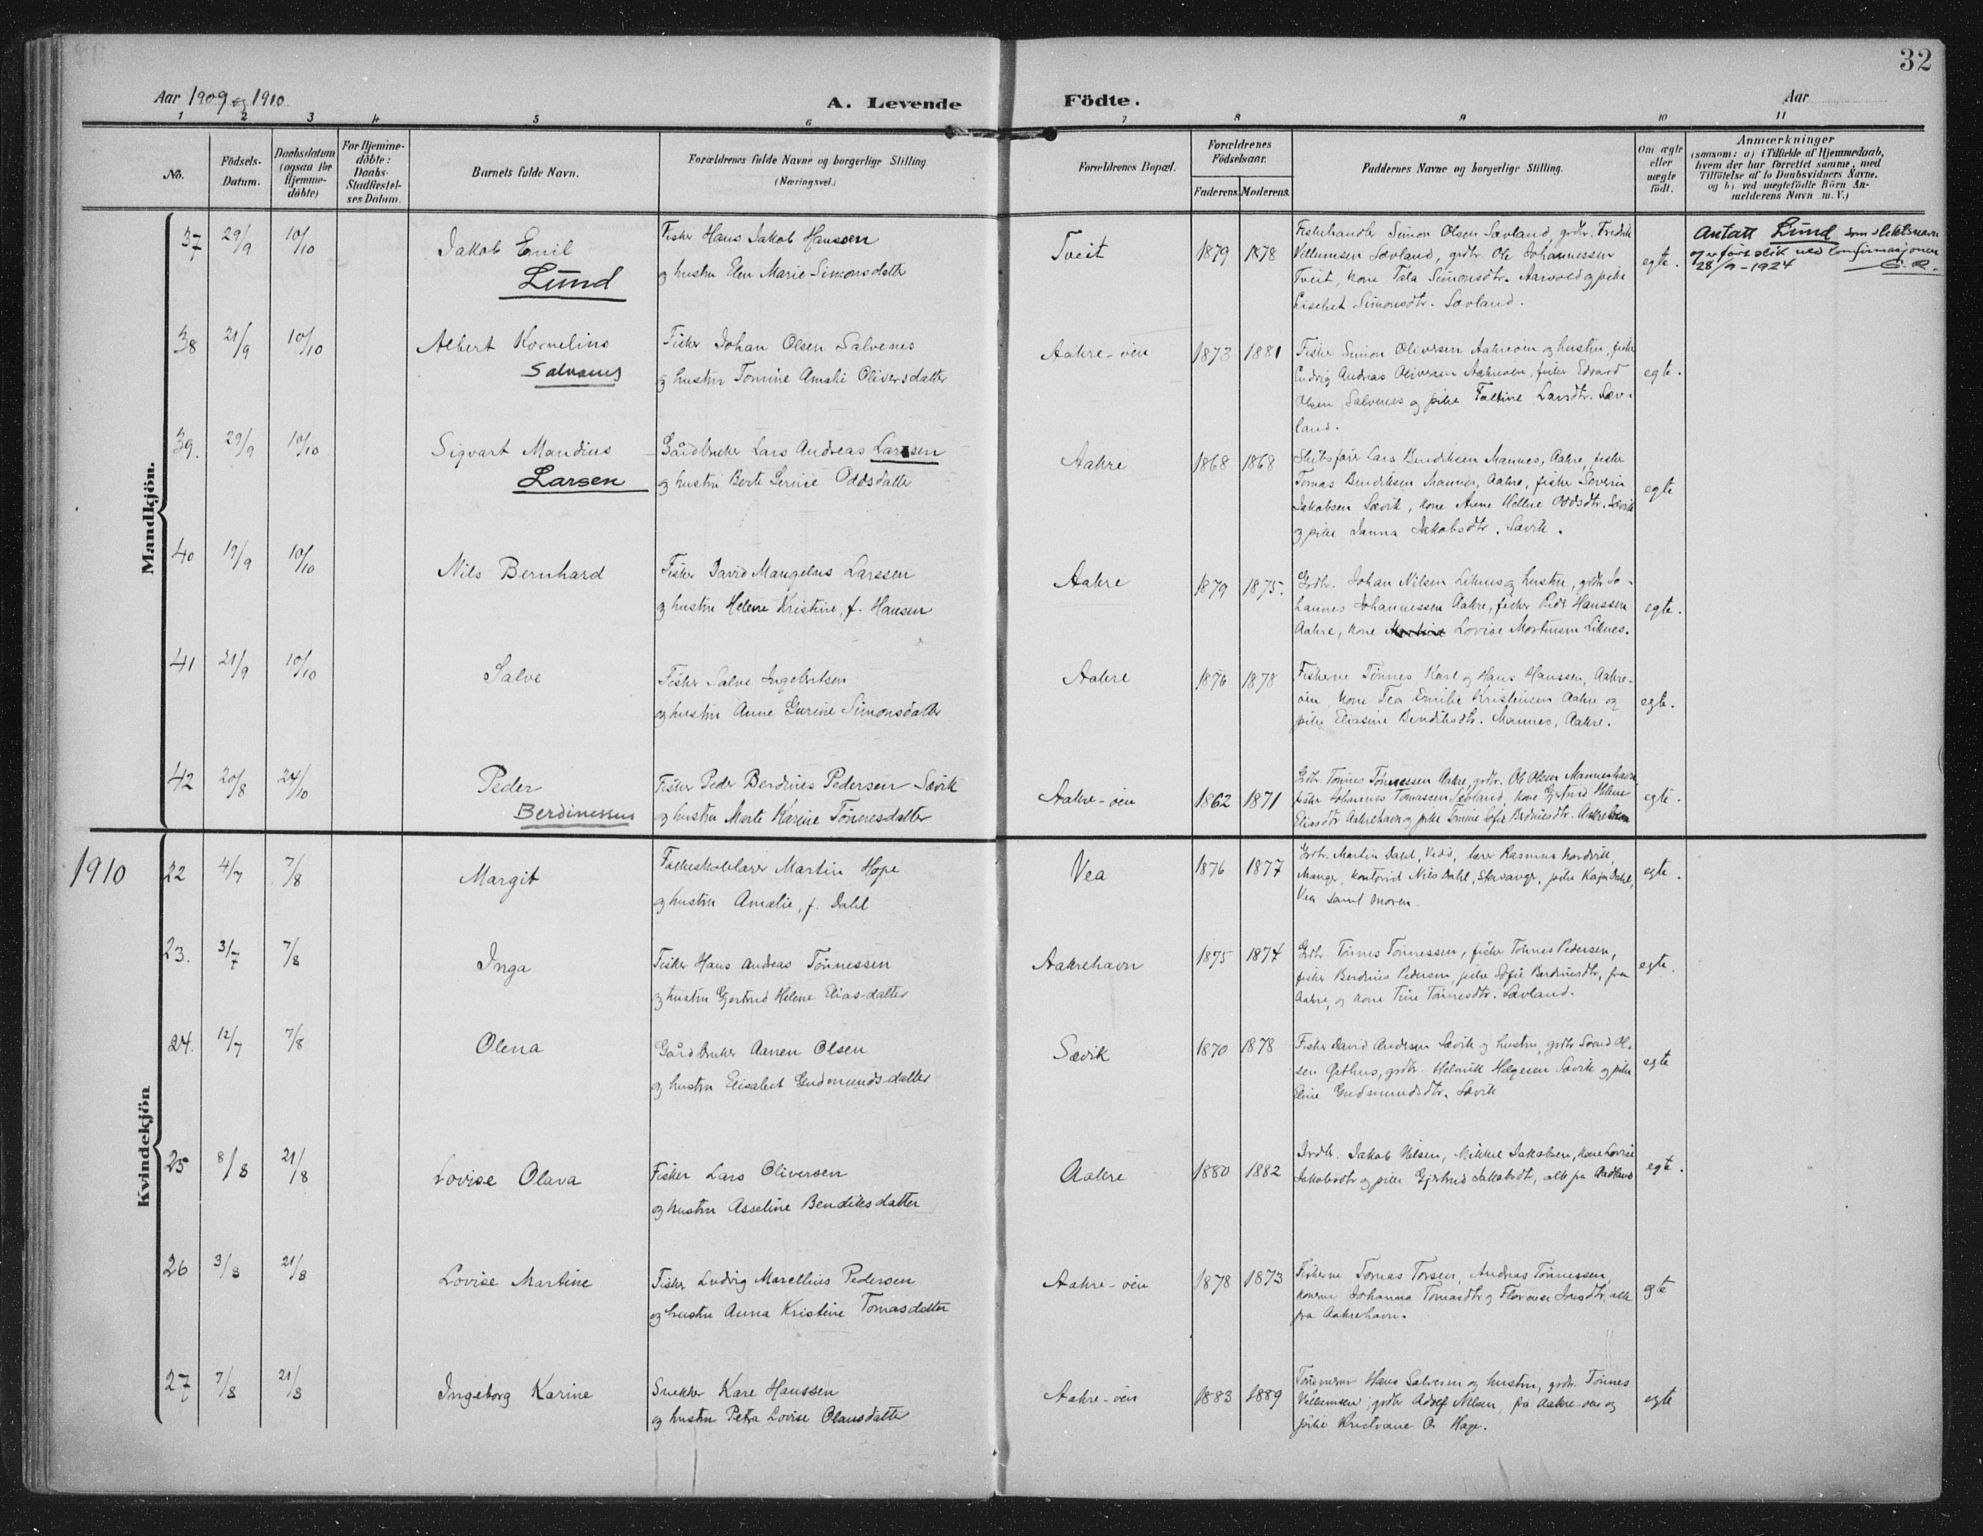 32
Aar 1909 og 1910.
A. Levende Födte.
Aar
1 2 3 4 5 6 7 8 9 10 11
No.
Födsels-Datum.
Daabsdatum (ogsaa for Hjemme-döbte)
For Hjemme-döbte: Daabs-Stadfæstel-ses Datum.
Barnets fulde Navn.
Forældrenes fulde Navne og borgerlige Stilling (Næringsvei.)
Forældrenes Bopæl.
Forældrenes Födselsaar.
Faderens. Moderens.
Faddernes Navne og borgerlige Stilling.
Om ægte eller uægte födt.
Anmærkninger
(saasom: a) i Tilfælde af Hjemmedaab,
hvem der har forrettet samme, med
Tilföielse af to Daabsvidners Navne.
og b) ved uægtefödte Börn An-
melderens Navn m. V.)
Mandkjön.
37 29/9 10/10 Jakob Emil
Lund
Fisker Hans Jakob Hanssen
og hustru Elen Marie Simonsdatter
Tveit 1879 1878
Fiskehandler Simon Olsen Sævland, grdbr. Fredrik
Villumsen Sævland, grdbr. Ole Johannessen
Tveit, kone Tala Simonsdtr. Aarvold og pike
Elisebet Simonsdtr. Sævland.
egte.
Antatt Lund som slektsnavn
og er ført slik ved konfirmasjonen
28/9-1924
38 21/9 10/10 Albert Kornelius
Salvenes
Fisker Johan Olsen Salvenes
og hustru Tomine Amalie Oliversdatter
Aakre-øen 1873 1881
Fisker Simon Oliversen Aakreøen og hustru, fisker
Ludvig Andreas Oliversen Aakreøen, fisker Edvard
Olsen Salvenes og pike Taline Larsdtr. Sæv-
land.
egte.
39. 29/9 10/10 Sigvart Mandius
Larsen
Gårdbruker Lars Andreas Larsen
og hustru Berte Serine Oddsdatter
Aakre 1868 1868
Skibsfører Lars Bendiksen Mannes, Aakre, fisker
Tomas Bendiksen Mannes, Aakre, fisker Severin
Jakobsen Sævik, kone Anne Helene Oddsdtr. Sævik
og pike Janna Jakobsdtr. Sævik.
egte
40 19/9 10/10 Nils Bernhard
Fisker David Mangelus Larssen
og hustru Helene Kristine, f. Hansen
Aakre 1879 1875.
Grdbr. Johan Nilsen Liknes og hustru, grdbr Jo-
hannes Johannessen Aakre, fisker Peder Hanssen
Aakre, kone Lovise Mortensen Liknes.
egte.
41 21/9 10/10 Salve
Fisker Salve Ingebretsen
og hustru Anne Gurine Simonsdatter
Aakre 1876 1878
Fiskerne Tønnes, Karl og Hans Hanssen, Aakre-
øen, kone Tea Emilie Kristensen Aakre og
pike Eliasine Bendiksdtr. Mannes, Aakre.
egte.
42 20/8 24/10 Peder
Berdinessen
Fisker Peder Berdines Pedersen Sævik
og hustru Marte Karine Tønnesdatter
Aakre-øen 1862 1871
Grdbr. Tønnes Tønnessen Aakre, grdbr. Ole Olsen Manneshavn
fisker Johannes Tomassen Sævland, kone Gjertrud Helene
Eliasdtr Aakrehavn og pike Tomine Sofie Berdinesdtr. Aakrehavn
egte.
1910
Kvindekjön
22 4/7 7/8 Margit
Folkeskolelærer Martin Hope
og hustru Amalie, f. Dahl
Vea 1876 1877
Grdbr. Martin Dahl, Vedø, lærer Rasmus Nordvik,
Manger, kontorist Nils Dahl, Stavanger, pike Kaja Dahl,
Vea samt moren.
egte.
23. 3/7 7/8 Inga
Fisker Hans Andreas Tønnessen
og hustru Gjertrud Helene Elias-datter
Aakrehavn 1875 1874
Grdbr. Tønnes Tønnessen, fisker Tønnes Pedersen,
fisker Berdines Pedersen, pike Sofie Berdinesdtr, fra
Aakre, og kone Tine Tønnesdtr. Sævland.
egte.
24. 12/7 7/8 Olena
Gårdbruker Aanen Olsen
og hustru Elisabet Gudmunds-datter
Sævik 1870 1878
Fisker David Andersen Sævik og hustru, grdbr Svend Ol-
sen Østhus, grdbr. Helmik Helgesen Sævik og pike
Eline Gudmundsdtr. Sævik
egte
25 8/8 21/8 Lovise Olava
Fisker Lars Oliversen
og hustru Asseline Bendiksdatter
Aakre 1880 1882
Grdbr. Jakob Nilsen, Mikkel Jakobsen, kone Lovise
Jakobsdtr og pike Gjertrud Jakobsdtr, alle fra
egte.
26 3/8 21/8 Lovise Martine
Fisker Ludvig Marellius Pedersen
og hustru Anna Kristine Tomasdatter
Aakre-øen 1878 1873
Fiskerne Tomas Torsen, Andreas Tønnessen,
konerne Johanna Tomasdtr og Florense Jonsdtr, alle
fra Aakrehavn.
egte
27 7/8 21/8 Ingeborg Karine
Snekker Kare Hanssen
og hustru Petra Lovise Olausdatter
Aakre-øen 1883 1889
Tømmerm Hans Salvesen og hustru, grdbr. Tønnes
Villumsen, grdbr Adolf Nilsen, fra Aakre-øen og
pike Kristiane O. Hage.
egte